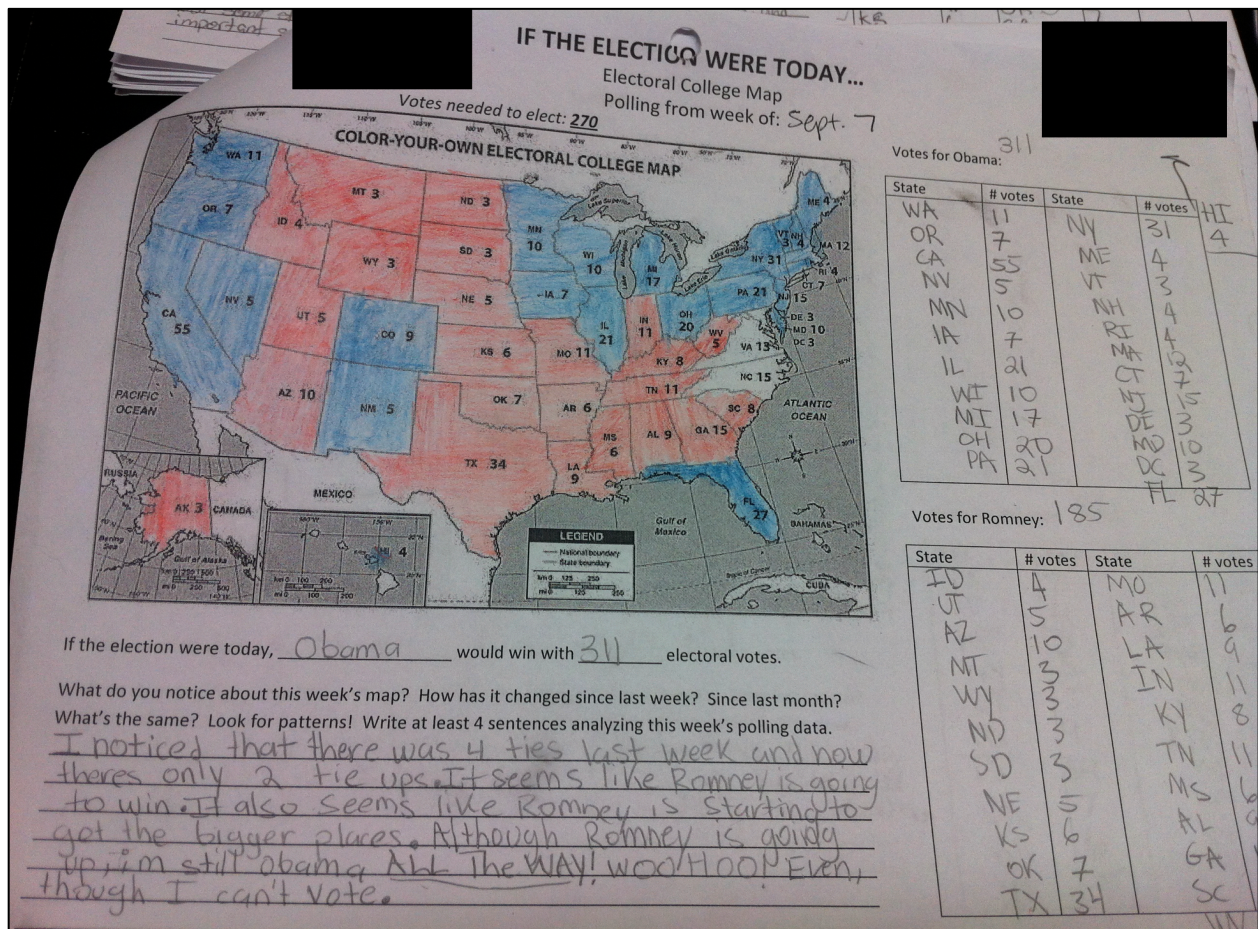 important
IF THE ELECTION WERE TODAY...
Electoral College Map
Polling from week of: Sept. 7
Votes needed to elect: 270
COLOR-YOUR-OWN ELECTORAL COLLEGE MAP
WA 11
OR 7
CA 55
NV 5
ID 4
MT 3
WY 3
UT 5
AZ 10
CO 9
NM 5
ND 3
SD 3
NE 5
KS 6
OK 7
TX 34
MN 10
IA 7
MO 11
AR 6
LA 9
WI 10
IL 21
MI 17
IN 11
OH 20
KY 8
TN 11
MS 6
AL 9
GA 15
FL 27
SC 8
NC 15
VA 13
WV 5
PA 21
NY 31
VT 3
NH 4
ME 4
MA 12
RI 4
CT 7
NJ 15
DE 3
MD 10
DC 3
AK 3
HI 4
Lake Superior
Lake Michigan
PACIFIC OCEAN
ATLANTIC OCEAN
RUSSIA
CANADA
Bering Sea
Gulf of Alaska
MEXICO
Gulf of Mexico
BAHAMAS
CUBA
Tropic of Cancer
LEGEND
National boundary
State boundary
Votes for Obama: 311
State # votes State # votes
WA 11 NY 31
OR 7 ME 4
CA 55 VT 3
NV 5 NH 4
MN 10 RI 4
IA 7 MA 12
IL 21 CT 7
WI 10 NJ 15
MI 17 DE 3
OH 20 MD 10
PA 21 DC 3
FL 27
HI
4
Votes for Romney: 185
State # votes State # votes
ID 4 MO 11
UT 5 AR 6
AZ 10 LA 9
MT 3 IN 11
WY 3 KY 8
ND 3 TN 11
SD 3 MS 6
NE 5 AL
KS 6 GA
OK 7 SC
TX 34
If the election were today, Obama would win with 311 electoral votes.
What do you notice about this week's map? How has it changed since last week? Since last month?
What's the same? Look for patterns! Write at least 4 sentences analyzing this week's polling data.
I noticed that there was 4 ties last week and now
theres only 2 tie ups. It seems like Romney is going
to win. It also seems like Romney is starting to
get the bigger places. Although Romney is going
up, i'm still Obama ALL The WAY! WOO HOO! Even,
though I can't vote.